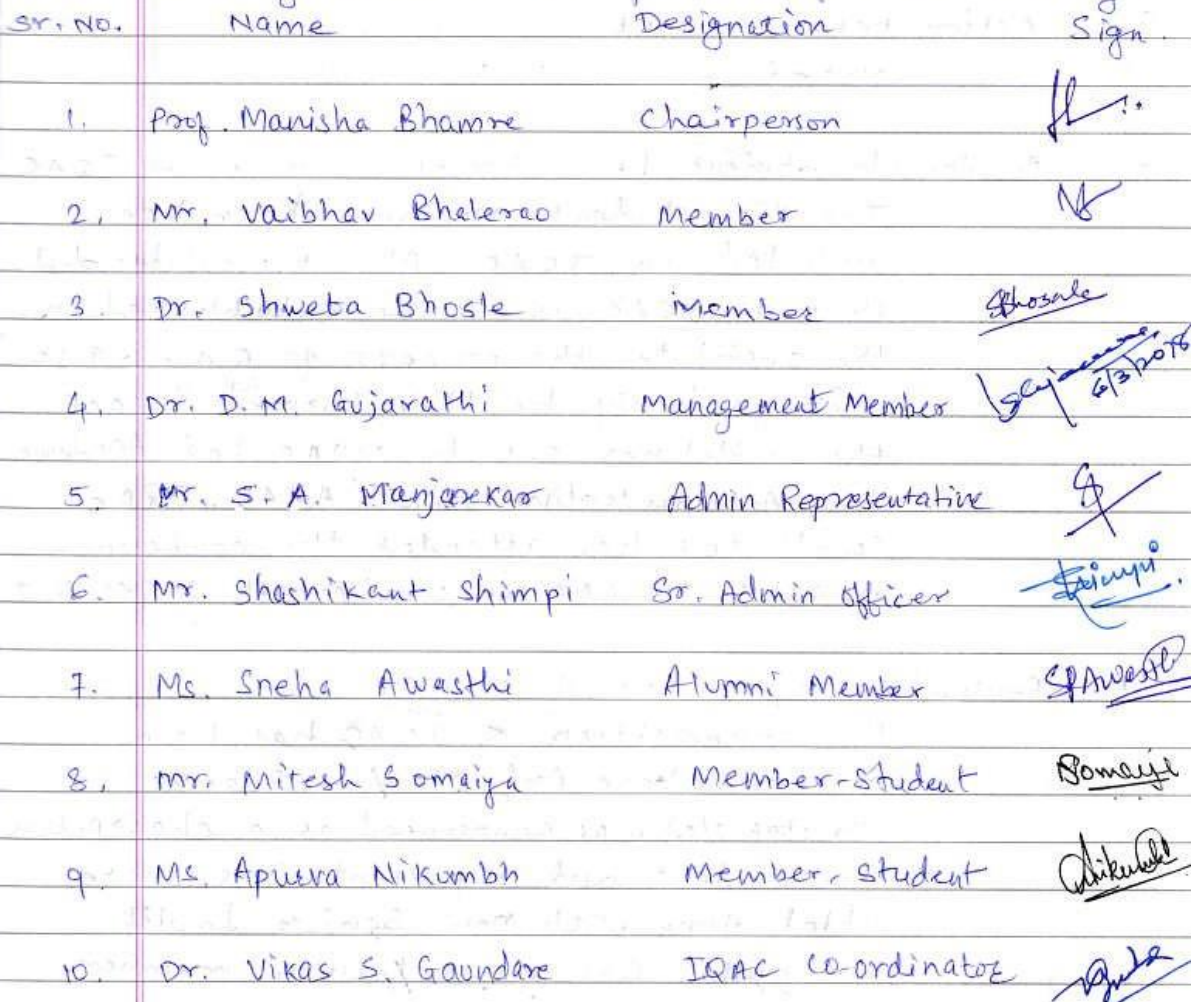 Sr. No. Name Designation Sign.
1. Prof. Manisha Bhamre Chairperson
2. Mr. Vaibhav Bhalerao Member
3 Dr. Shweta Bhosle Member SBhosale
4. Dr. D. M. Gujarathi Management Member 6/3/2018
5. Mr. S. A. Manjarekar Admin Representative
6. Mr. Shashikant Shimpi Sr. Admin Officer
7. Ms. Sneha Awasthi Alumni Member SPAwasthi
8. Mr. Mitesh Somaiya Member-Student
9. Ms. Apurva Nikumbh Member-Student
10. Dr. Vikas S. Gaundare IQAC Co-ordinator